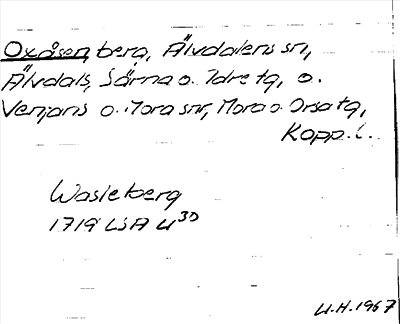 Oxåsen, berg, Älvdalens sn,
Älvdals, Särna o. Idre tg, o.
Venjans o. Mora snr, Mora o. Orsa tg,
Kopp. l.
Wasleberg
1719 LSA U30
U.H. 1967